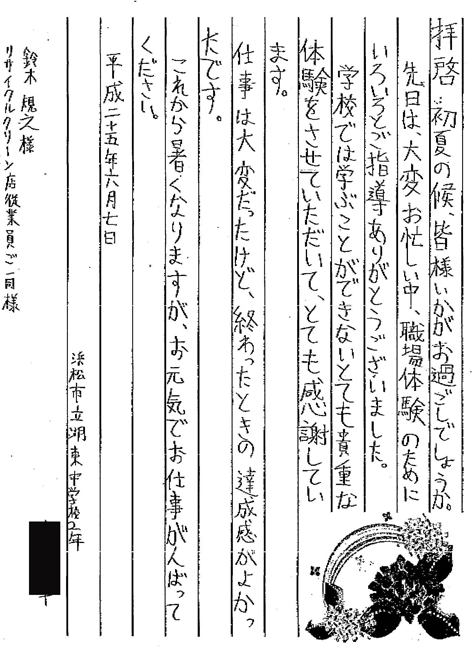 拝啓 初夏の候、皆様いかがお過ごしでしょうか。
先日は、大変お忙しい中、職場体験のために
いろいろとご指導ありがとうございました。
学校では学ぶことができないとても貴重な
体験をさせていただいて、とても感謝してい
ます。
仕事は大変だったけど、終わったときの達成感がよかっ
たです。
これから暑くなりますが、お元気でお仕事がんばって
ください。
平成二十五年六月七日
浜松市立湖東中学校2年
鈴木 規之様
リサイクルクリーン店従業員ご一同様